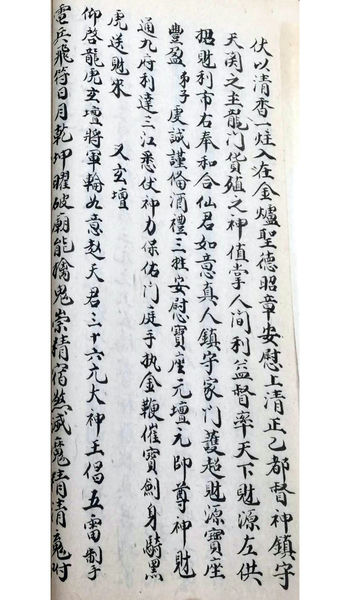 伏以清香一炷入在金爐聖德昭章安慰上清正乙都督神鎮守
天関之主龍门貨殖之神值掌人间利益督率天下財源左供
招財利市右奉和合仙君如意真人鎮守家门護起財源寶座
豐盈 弟子虔誠謹俻酒禮三牲安慰寶座元壇元帥尊神財
通九府利達三江悉伏神力保佑门庭手执金鞭催寶劍身騎黑
虎送財來 又玄壇
仰啓龍虎玄壇將軍輪如意赵天君三十六元大神王倡五雷制手
電兵飛符日月乾坤曜破廟能擒鬼祟精宿煞滅魔精清魔咐